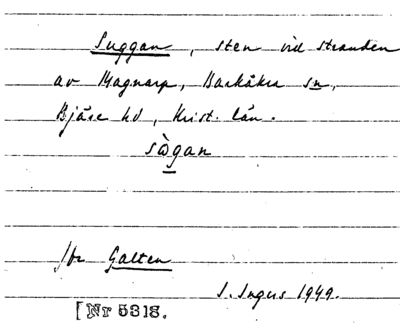 Suggan, sten vid stranden
av Magnarp, Barkåkra sn,
Bjäre hd, Krist. län.
sògan
Jfr Galten
S. Ingers 1949.
[Nr 5318.